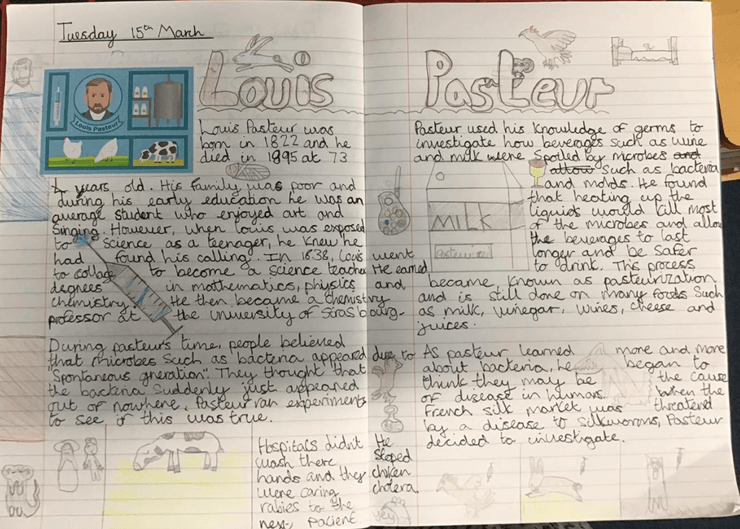 Tuesday 15th March
Louis Pasteur
Louis Pasteur
Louis Pasteur was
born in 1822 and he
died in 1895 at 73
years old. His family was poor and
during his early education he was an
average student who enjoyed art and
Singing. However, when Louis was exposed
to Science as a teenager, he knew he
had found his calling. In 1838, Louis went
to collage to become a Science teacher. He earned
degrees in mathematics, physics and
chemistry. He then became a chemistry
professor at the university of Strasbourg.
During pasteur's time, people believed
that microbes such as bacteria appeared due to
"Spontaneous gneration". They thought that
the bacteria suddenly just appeared
out of nowhere. Pasteur ran experiments
to see if this was true.
Hospitals didnt
wash there
hands and they
were caring
rabies to the
next pacient
He
stoped
chiken
cholera
Pasteur used his knowledge of germs to
investigate how beverages such as wine
and milk were spoiled by microbes and
allow such as bacteria
and molds. He found
that heating up the
liquids would kill most
of the microbes and allow
the beverages to last
longer and be safer
to drink. This process
became known as pasteurization
and is still done on many foods such
as milk, vinegar, wines, cheese and
juices.
MILK
Pasteurized
As pasteur learned more and more
about bacteria, he began to
think they may be the cause
of disease in humans. When the
French silk market was threatend
by a disease to silkworms, Pasteur
decided to investigate.